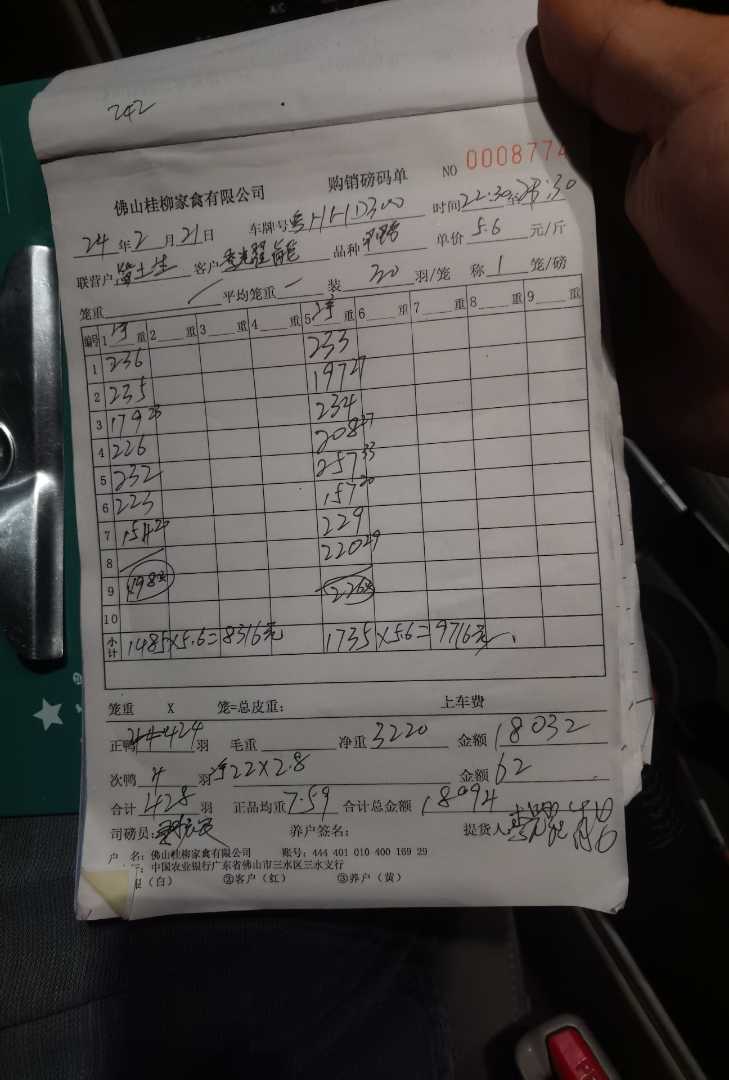 242
佛山桂柳家食有限公司 购销磅码单 NO 0008774
24年2月21日 车牌号 粤HHD300 时间22:30至
联营户 客户 品种 单价 5.6 元/斤
笼重 平均笼重 装 20 羽/笼 称 1 笼/磅
编号 1 净 重 2 重 3 重 4 重 5 净 重 6 重 7 重 8 重 9 重
1 236 233
2 235 197 27
3 179 23 234
4 226 208 27
5 232 257 33
6 223 157 20
7 154 20 229
8 220 29
9 198 226
10
小计 1485×5.6=8316元 1735×5.6=9716元
笼重 X 笼=总皮重: 上车费
正鸭 424 羽 毛重 净重 3220 金额 18032
次鸭 4 羽 净22×2.8 金额 62
合计 428 羽 正品均重 7.59 合计总金额 18094
司磅员: 养户签名: 提货人
户 名: 佛山桂柳家禽有限公司 账号: 444 401 010 400 169 29
中国农业银行广东省佛山市三水区三水支行
(白) ②客户(红) ③养户(黄)